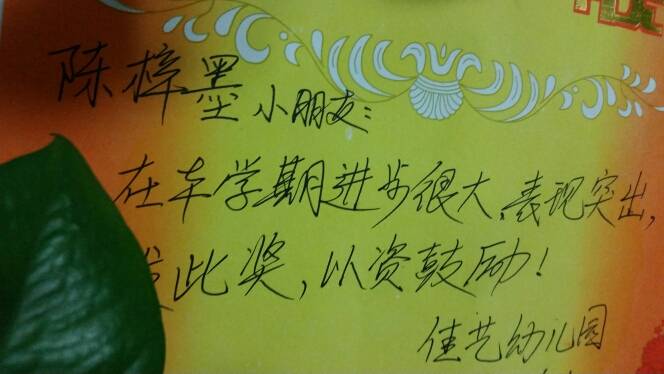 陈梓墨 小朋友:
在本学期进步很大,表现突出,
发此奖,以资鼓励!
佳艺幼儿园